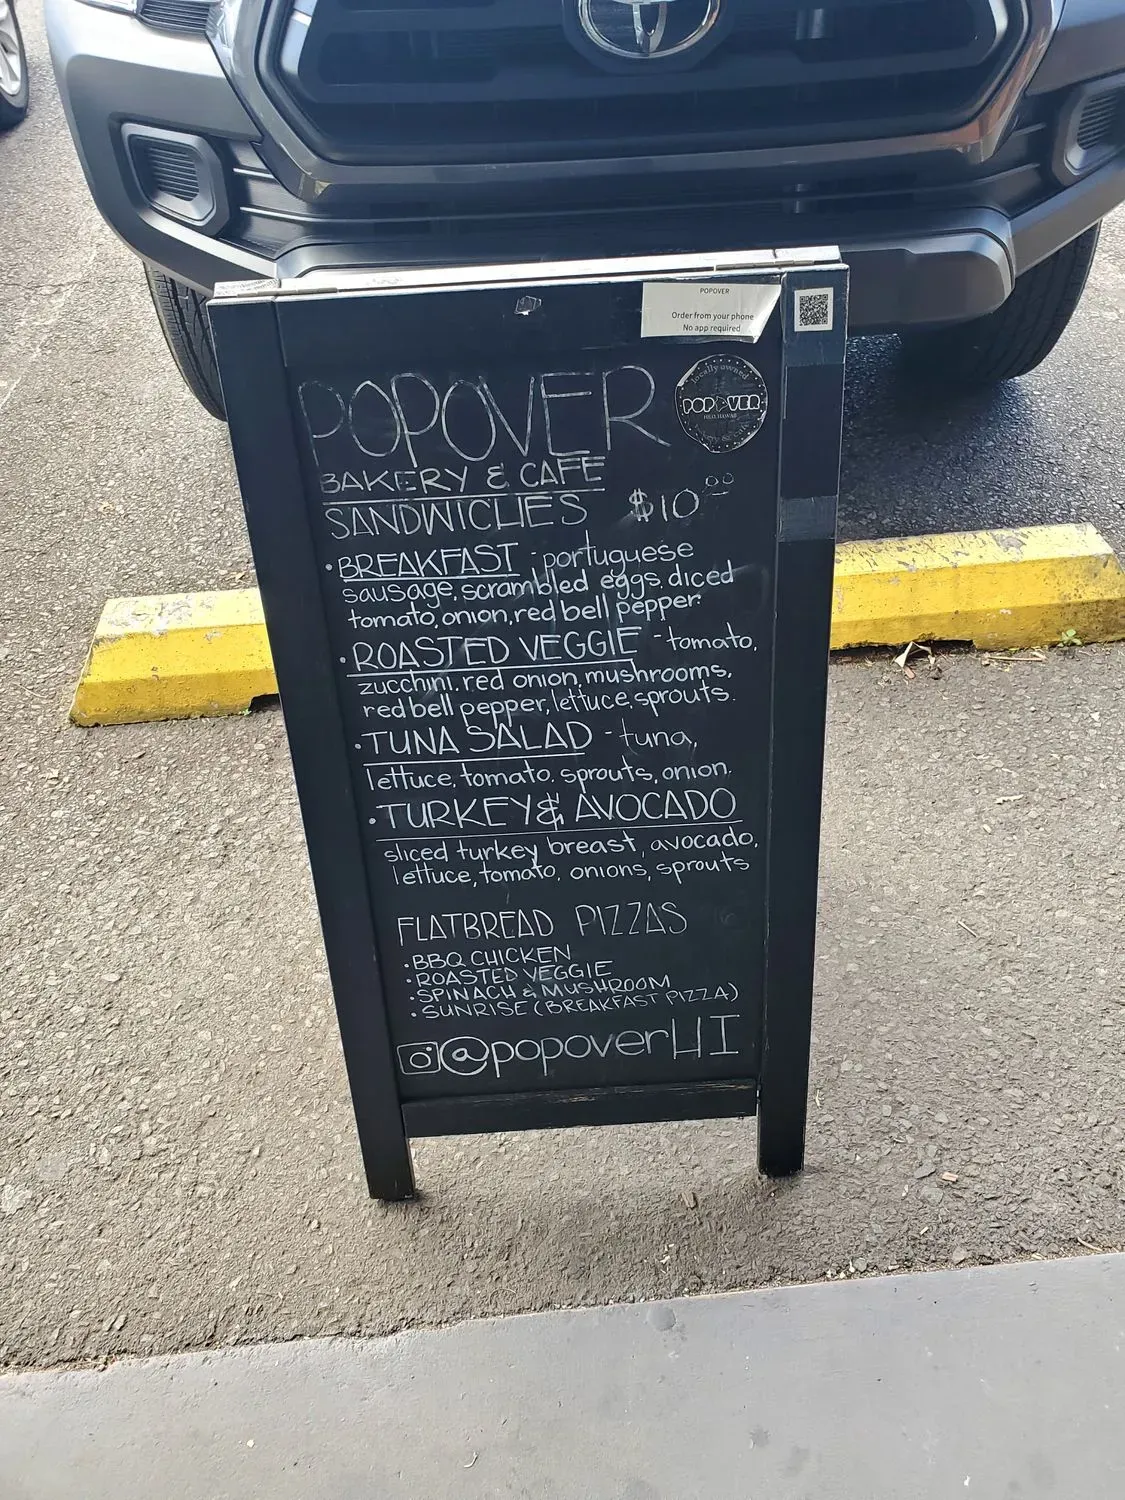 POPOVER
Order from your phone
No app required
POPOVER
locally owned
POPOVER
HILO, HAWAII
BAKERY & CAFE
SANDWICHES $10.00
• BREAKFAST - portuguese
sausage, scrambled eggs, diced
tomato, onion, red bell pepper.
• ROASTED VEGGIE - tomato,
zucchini, red onion, mushrooms,
red bell pepper, lettuce, sprouts.
• TUNA SALAD - tuna,
lettuce, tomato, sprouts, onion.
• TURKEY & AVOCADO
sliced turkey breast, avocado,
lettuce, tomato, onions, sprouts
FLATBREAD PIZZAS
• BBQ CHICKEN
• ROASTED VEGGIE
• SPINACH & MUSHROOM
• SUNRISE (BREAKFAST PIZZA)
@popoverHI